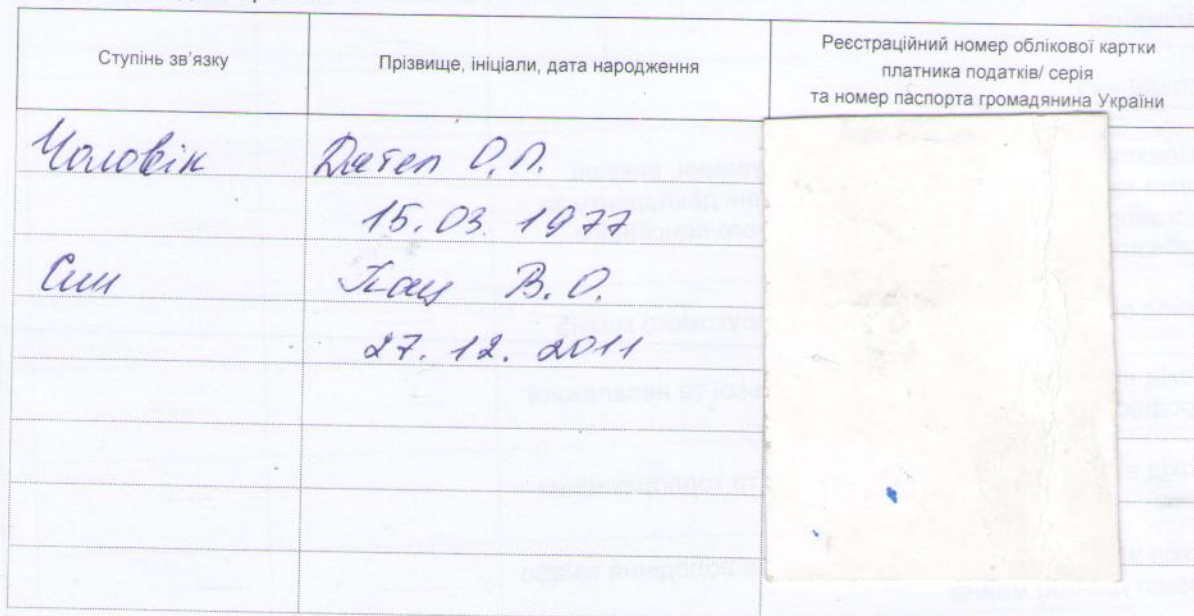 Ступінь зв'язку
Прізвище, ініціали, дата народження
Реєстраційний номер облікової картки
платника податків/ серія
та номер паспорта громадянина України
Чоловік
Дятел О.П.
15.03 1977
Син
Кац В.О.
27.12.2011